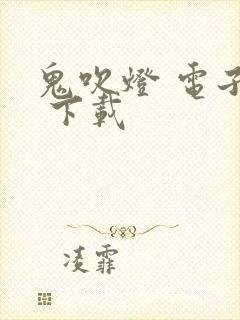 鬼吹燈 電子
下載
凌霏